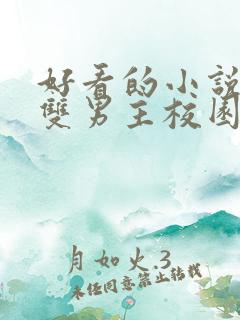 好看的小說
雙男主校園
月如火.3
未经同意禁止转载